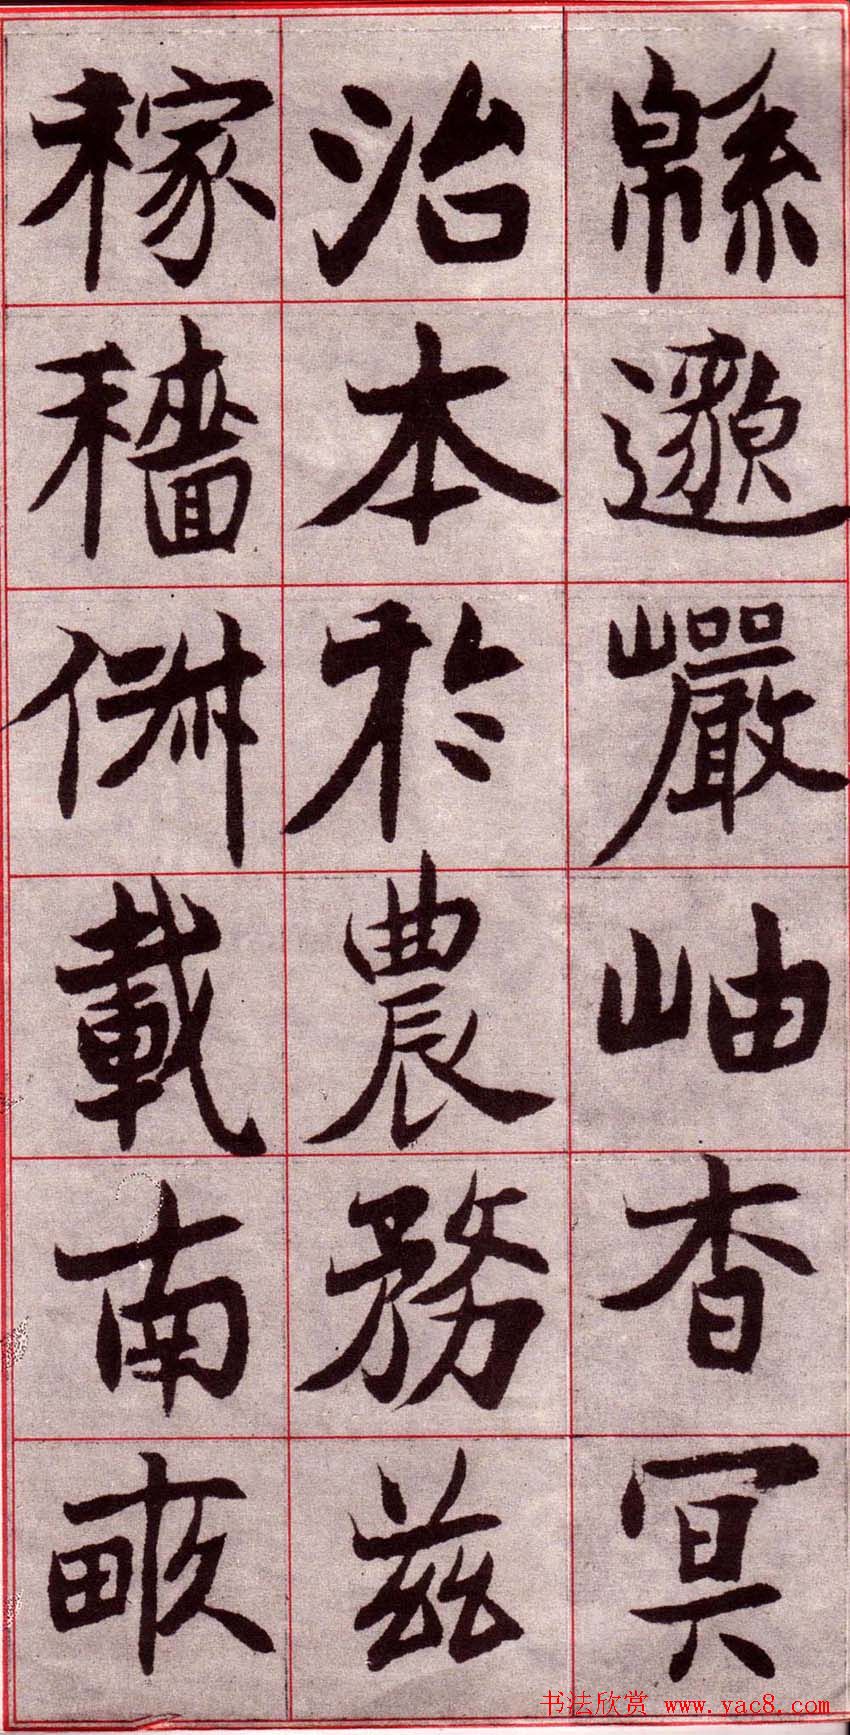 緜邈巖岫杳冥
治本於農務茲
稼穡俶載南畝
书法欣赏 www.yac8.com